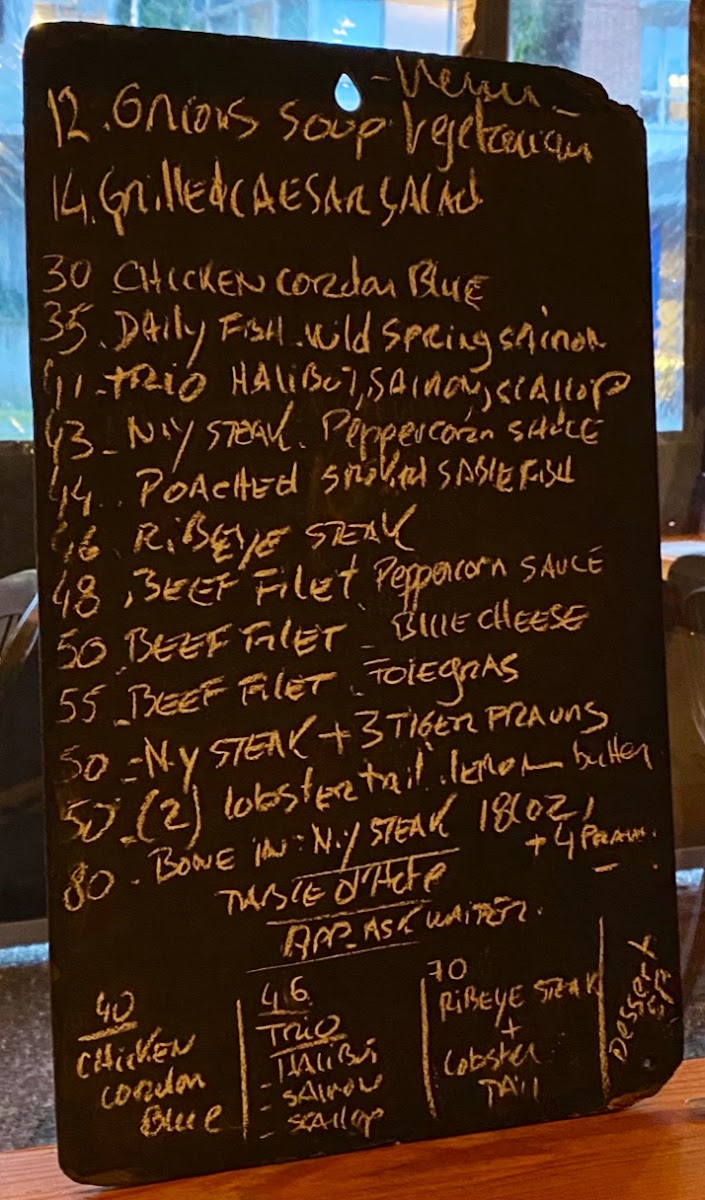 - Menu -
12. Onions Soup Vegetarian
14. Grilled CAESAR SALAD
30 CHICKEN Cordon BLUE
35. DAILY FISH. Wild Spring SAlmon
41 - TRIO HALIBUT, SALMON, SCALLOP
43 - N.Y STEAK. Peppercorn SAUCE
44. POACHED SMOKED SABLEFISH
46. RIBEYE STEAK
48. BEEF FILET Peppercorn SAUCE
50. BEEF FILET - BLUE CHEESE
55 - BEEF FILET. FOIEGRAS
50 - N.Y STEAK + 3 TIGER PRAWNS
50 - (2) lobster tail. lemon butter
80. BONE IN N.Y STEAK 18(OZ)
+ 4 PRAWN.
TABLE D'HOTE
APP. ASK WAITER.
40
CHICKEN
Cordon
BLUE
46
TRIO
- HALIBUT
- SALMON
- SCALLOP
70
RIBEYE STEAK
+
Lobster
TAIL
DESSERT